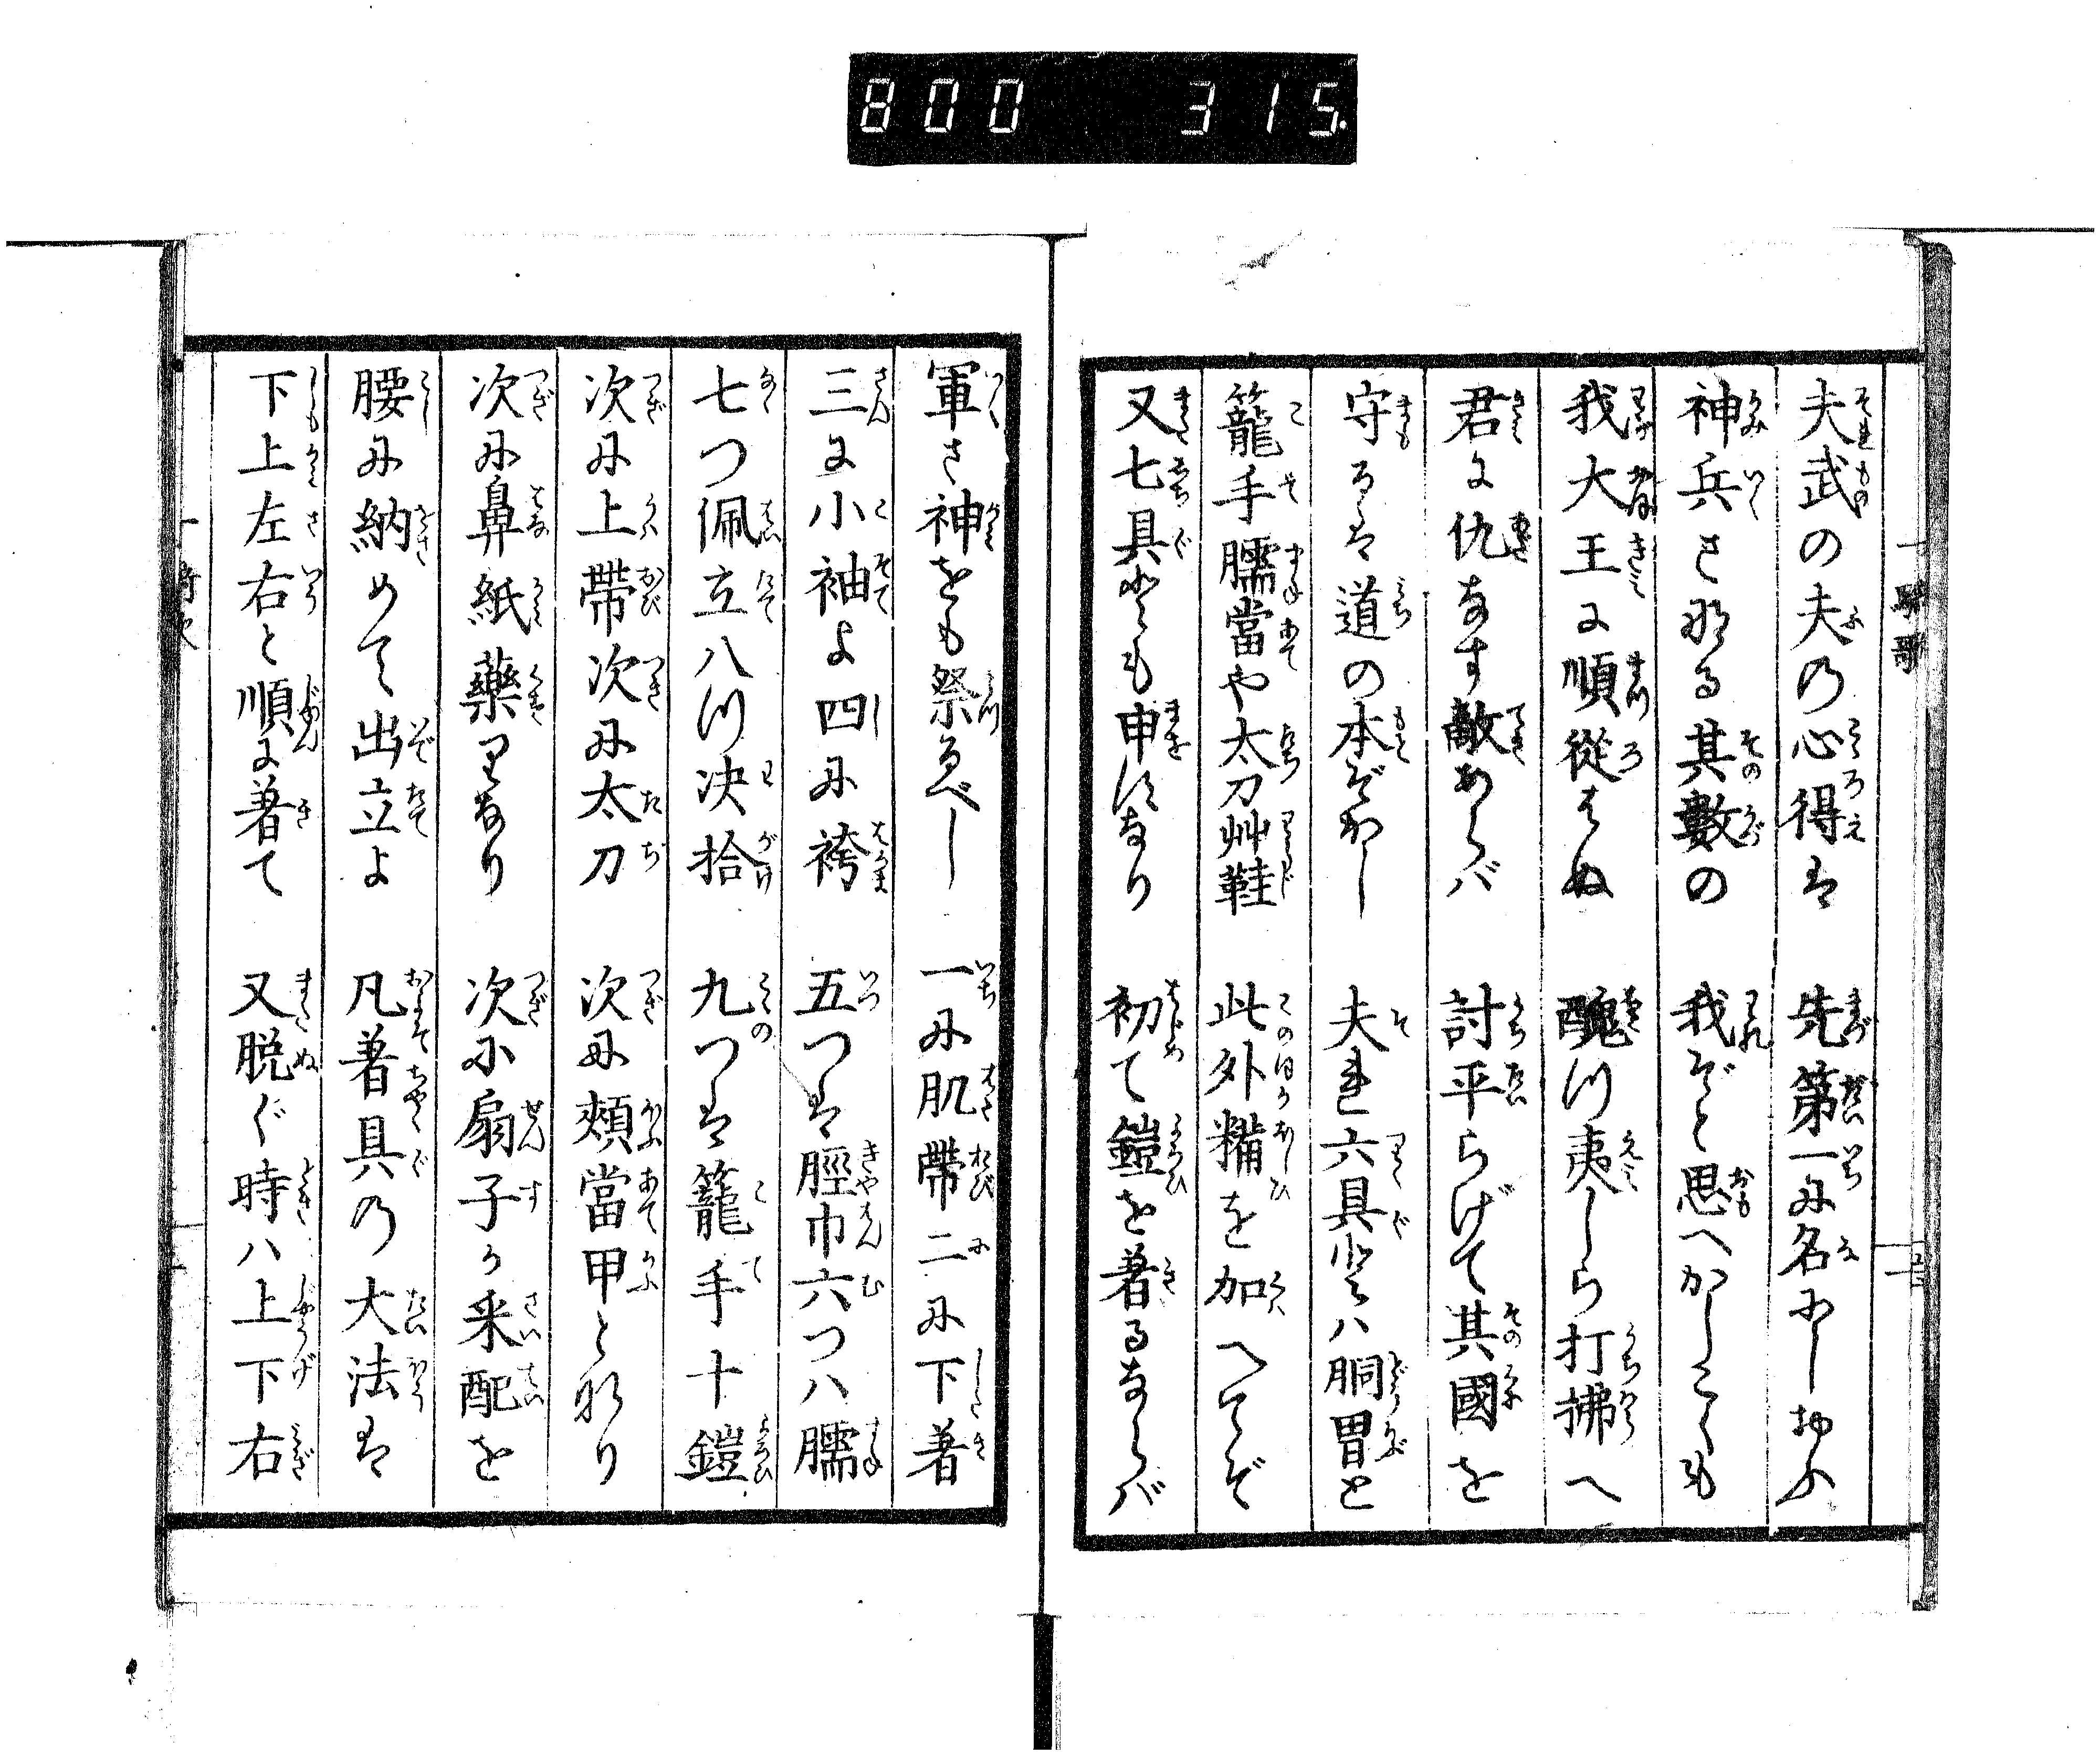 800 315
一騎歌
夫武の夫の心得は 先第一に名にしおふ
神兵さなる其數の 我ぞと思へかしこくも
我大王に順從はぬ 醜つ夷しら打拂へ
君に仇なす敵あらバ 討平らげて其國を
守るは道の本ぞかし 夫れ六具とハ胴冑と
籠手臑當や太刀艸鞋 此外糒を加へてぞ
又七具とも申すなり 初て鎧を著るならバ
軍さ神をも祭るべし 一に肌帶二に下著
三に小袖よ四に袴 五つは脛巾六つハ臑
七つ佩立八つ决拾 九つは籠手十鎧
次に上帶次に太刀 次に頰當甲となり
次に鼻紙藥りなり 次に扇子か采配を
腰に納めて出立よ 凡著具の大法は
下上左右と順に著て 又脱ぐ時ハ上下右